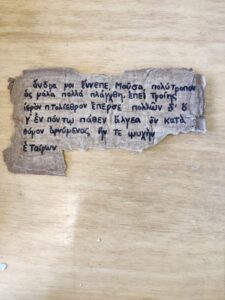 ἄνδρα μοι ἔννεπε, Μοῦσα, πολύτροπον
ὃς μάλα πολλὰ πλάγχθη, ἐπεὶ Τροίης
ἱερὸν πτολίεθρον ἔπερσε πολλῶν δ'
γ' ἐν πόντῳ πάθεν ἄλγεα ὃν κατὰ
θυμόν ἀρνύμενος ἥν τε ψυχὴν
ἑταίρων